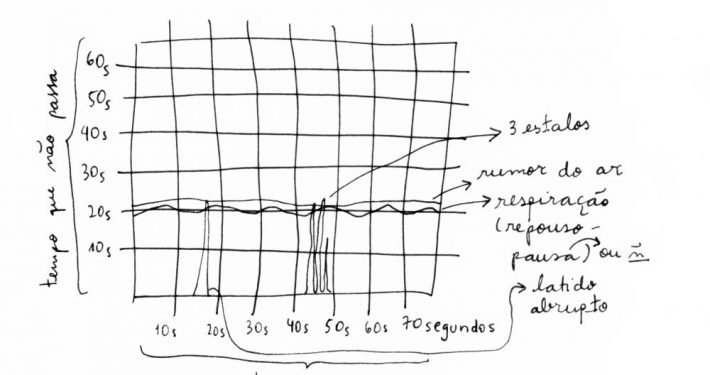 tempo que não passa
60s
50s
40s
30s
20s
10s
10s 20s 30s 40s 50s 60s 70 segundos
3 estalos
rumor do ar
respiração
(repouso-
pausa) ou ñ
latido
abrupto